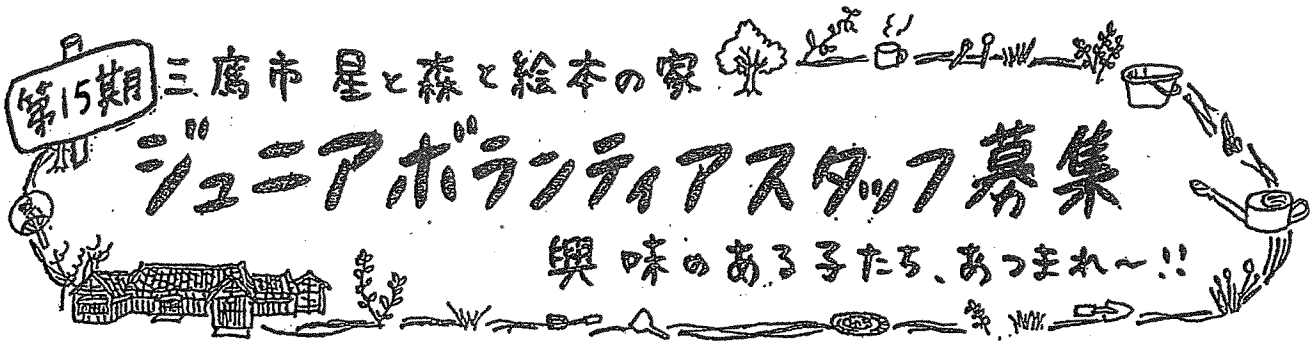 第15期
三鷹市 星と森と絵本の家
ジュニアボランティアスタッフ募集
興味のある子たち、あつまれ〜!!